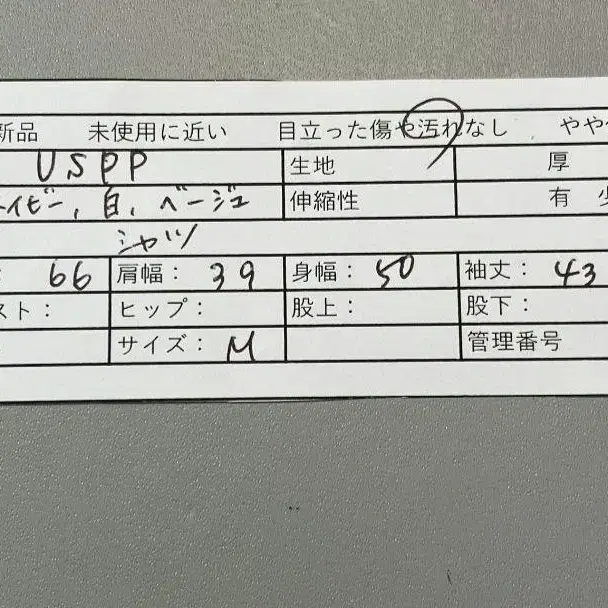 新品 未使用に近い 目立った傷や汚れなし やや
USPP 生地 厚
イビー, 白, ベージュ 伸縮性 有 少
シャツ
: 66 肩幅: 39 身幅: 50 袖丈: 43
スト: ヒップ: 股上: 股下:
サイズ: M 管理番号